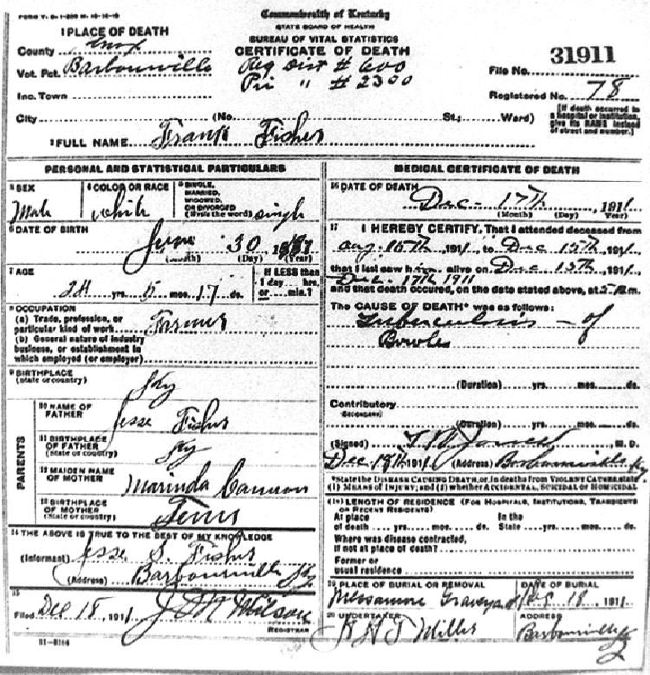 FORM V. S. 1-200 M. 10-16-10
Commonwealth of Kentucky
STATE BOARD OF HEALTH
BUREAU OF VITAL STATISTICS
CERTIFICATE OF DEATH
1 PLACE OF DEATH
County Knox
Vot. Pct. Barbourville
Reg Dist # 600
Pri " # 2300
Inc. Town
File No. 31911
Registered No. 78
City (No. St.; Ward)
[If death occurred in a hospital or institution, give its NAME instead of street and number.]
2 FULL NAME Frank Fisher
PERSONAL AND STATISTICAL PARTICULARS
3 SEX Male
4 COLOR OR RACE White
5 SINGLE, MARRIED, WIDOWED, OR DIVORCED (Write the word) single
6 DATE OF BIRTH June 30
(Month) (Day) (Year)
7 AGE 24 yrs. 5 mos. 17 ds.
If LESS than 1 day ... hrs. or ... min.?
8 OCCUPATION
(a) Trade, profession, or particular kind of work Farmer
(b) General nature of industry business, or establishment in which employed (or employer)
9 BIRTHPLACE
(State or country) Ky
PARENTS
10 NAME OF FATHER Jesse Fisher
11 BIRTHPLACE OF FATHER
(State or country) Ky
12 MAIDEN NAME OF MOTHER Marinda Cameron
13 BIRTHPLACE OF MOTHER
(State or country) Tenn
14 THE ABOVE IS TRUE TO THE BEST OF MY KNOWLEDGE
(Informant) Jesse S. Fisher
(Address) Barbourville Ky
15
Filed Dec 18, 1911
REGISTRAR
11-3184
MEDICAL CERTIFICATE OF DEATH
16 DATE OF DEATH Dec- 17th, 1911
(Month) (Day) Year
17 I HEREBY CERTIFY, That I attended deceased from
Aug 15th, 1911, to Dec 15th, 1911,
that I last saw h alive on Dec 15th, 1911
Dec. 17th 1911
and that death occured, on the date stated above, at m.
The CAUSE OF DEATH* was as follows:
Tuberculosis - of
Bowels
(Duration) yrs. mos. ds.
Contributory
SECONDARY
(Duration) yrs. mos. ds.
(Signed) M. D.
Dec 18th, 1911 (Address) Barbourville Ky
*State the DISEASE CAUSING DEATH, or, in deaths from VIOLENT CAUSES, state (1) MEANS OF INJURY; and (2) whether ACCIDENTAL, SUICIDAL or HOMICIDAL.
(18) LENGTH OF RESIDENCE (FOR HOSPITALS, INSTITUTIONS, TRANSIENTS OR RECENT RESIDENTS)
At place of death yrs. mos. ds. In the State yrs. mos. ds.
Where was disease contracted,
if not at place of death?
Former or
usual residence
19 PLACE OF BURIAL OR REMOVAL
DATE OF BURIAL
18, 1911
20 UNDERTAKER
Miller
ADDRESS
Barbourville